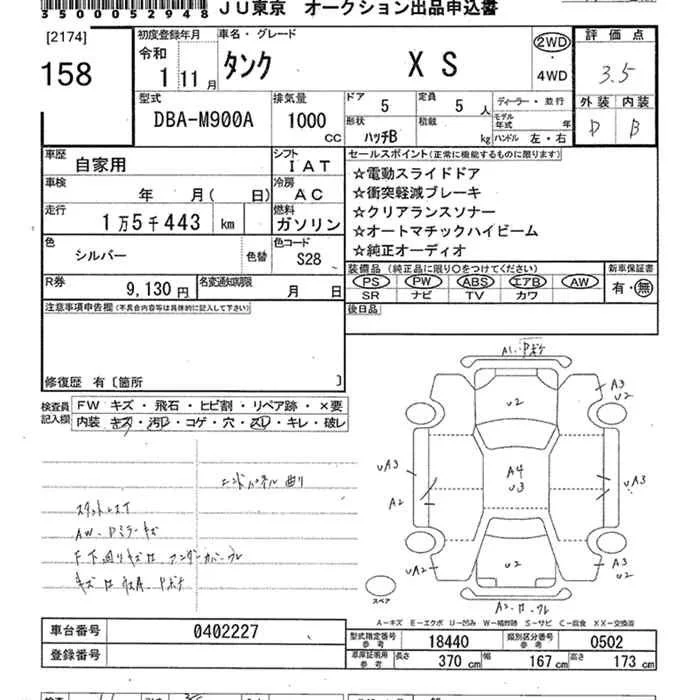 3500052948 JU東京 オークション出品申込書
[2174]
158
初度登録年月
令和
1 11月
車名・グレード
タンク XS
2WD
4WD
評価点
3.5
外装 内装
D B
型式
DBA-M900A
排気量
1000 cc
ドア 5
定員 5 人
形状 ハッチB
積載 kg
ディーラー・並行
モデル年式 年
ハンドル 左・右
車歴 自家用
シフト IAT
車検 年 月( 日)
冷房 AC
走行 1万5千443 km
燃料 ガソリン
色 シルバー 色替
色コード S28
R券 9,130円
名変通知期限 月 日
セールスポイント(正常に機能するものに限ります)
☆電動スライドドア
☆衝突軽減ブレーキ
☆クリアランスソナー
☆オートマチックハイビーム
☆純正オーディオ
装備品(純正品に限り○をつけてください)
PS PW ABS エアB AW
SR ナビ TV カワ
新車保証書
有・無
後日品
注意事項申告欄(不具合内容等は具体的に記入して下さい)
修復歴 有〔箇所 〕
検査員記入欄
FW キズ・飛石・ヒビ割・リペア跡・×要
内装 キズ・汚レ・コゲ・穴・スレ・キレ・破レ
エンドパネル曲り
AW・Dミラーキズ
A1・Pボケ
U2
A3
U2
A4
U3
UA3
A2
UA3
U2
UA2
A3
U2
スペア
A-キズ E-エクボ U-凹み W-補修跡 S-サビ C-腐食 XX-交換済
車台番号 0402227
登録番号
型式指定番号 参考 18440
類別区分番号 参考 0502
車庫証明用 参考
長さ 370 cm 幅 167 cm 高さ 173 cm